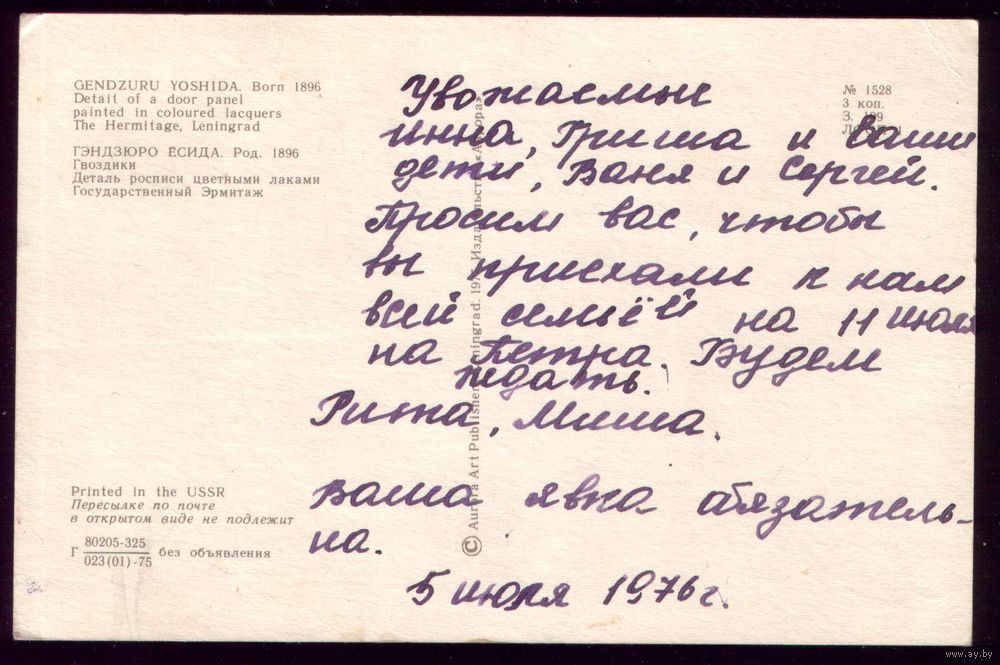 GENDZURU YOSHIDA. Born 1896
Detail of a door panel
painted in coloured lacquers
The Hermitage, Leningrad
ГЭНДЗЮРО ЁСИДА. Род. 1896
Гвоздики
Деталь росписи цветными лаками
Государственный Эрмитаж
№ 1528
3 коп.
З.
Уважаемые
инна, Гриша и ваши
дети, Ваня и Сергей.
Просим вас, чтобы
вы приехали к нам
всей семьёй на 11 июля
на Петра. Будем
ждать.
Рита, Миша.
Ваша явка обязатель-
на.
5 июля 1976 г.
© Aurora Art Publishers Leningrad. Издательство «Аврора»
Printed in the USSR
Пересылке по почте
в открытом виде не подлежит
Г 80205-325 без объявления
023(01)-75
www.ay.by